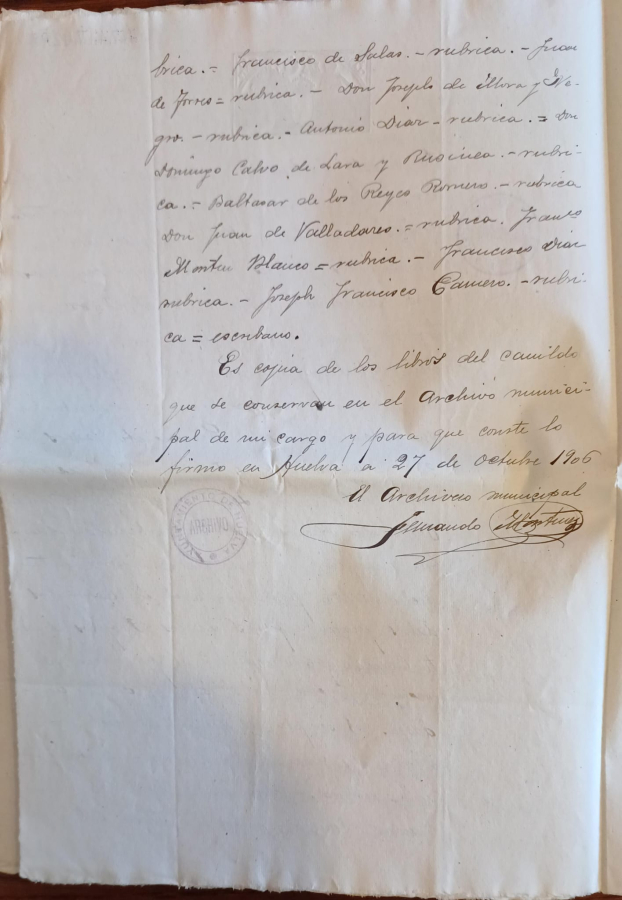 brica. = Francisco de Salas. - rubrica. - Juan
de Torres = rubrica. - Don Joseph de Mora y Ne-
gro. - rubrica. - Antonio Diaz - rubrica. = Don
Domingo Calvo de Lara y - rubri-
ca. = Baltasar de los Reyes Romero. - rubrica
Don Juan de Valladares. = rubrica. Franco
Blanco = rubrica. - Francisco Diaz
rubrica. - Joseph Francisco Camero. - rubri-
ca = escribano.
Es copia de los libros del cavildo
que se conservan en el Archivo munici-
pal de mi cargo y para que conste lo
firmo en Huelva a 27 de Octubre 1906
El Archivero municipal
Fernando Martinez
AYUNTAMIENTO DE HUELVA
ARCHIVO